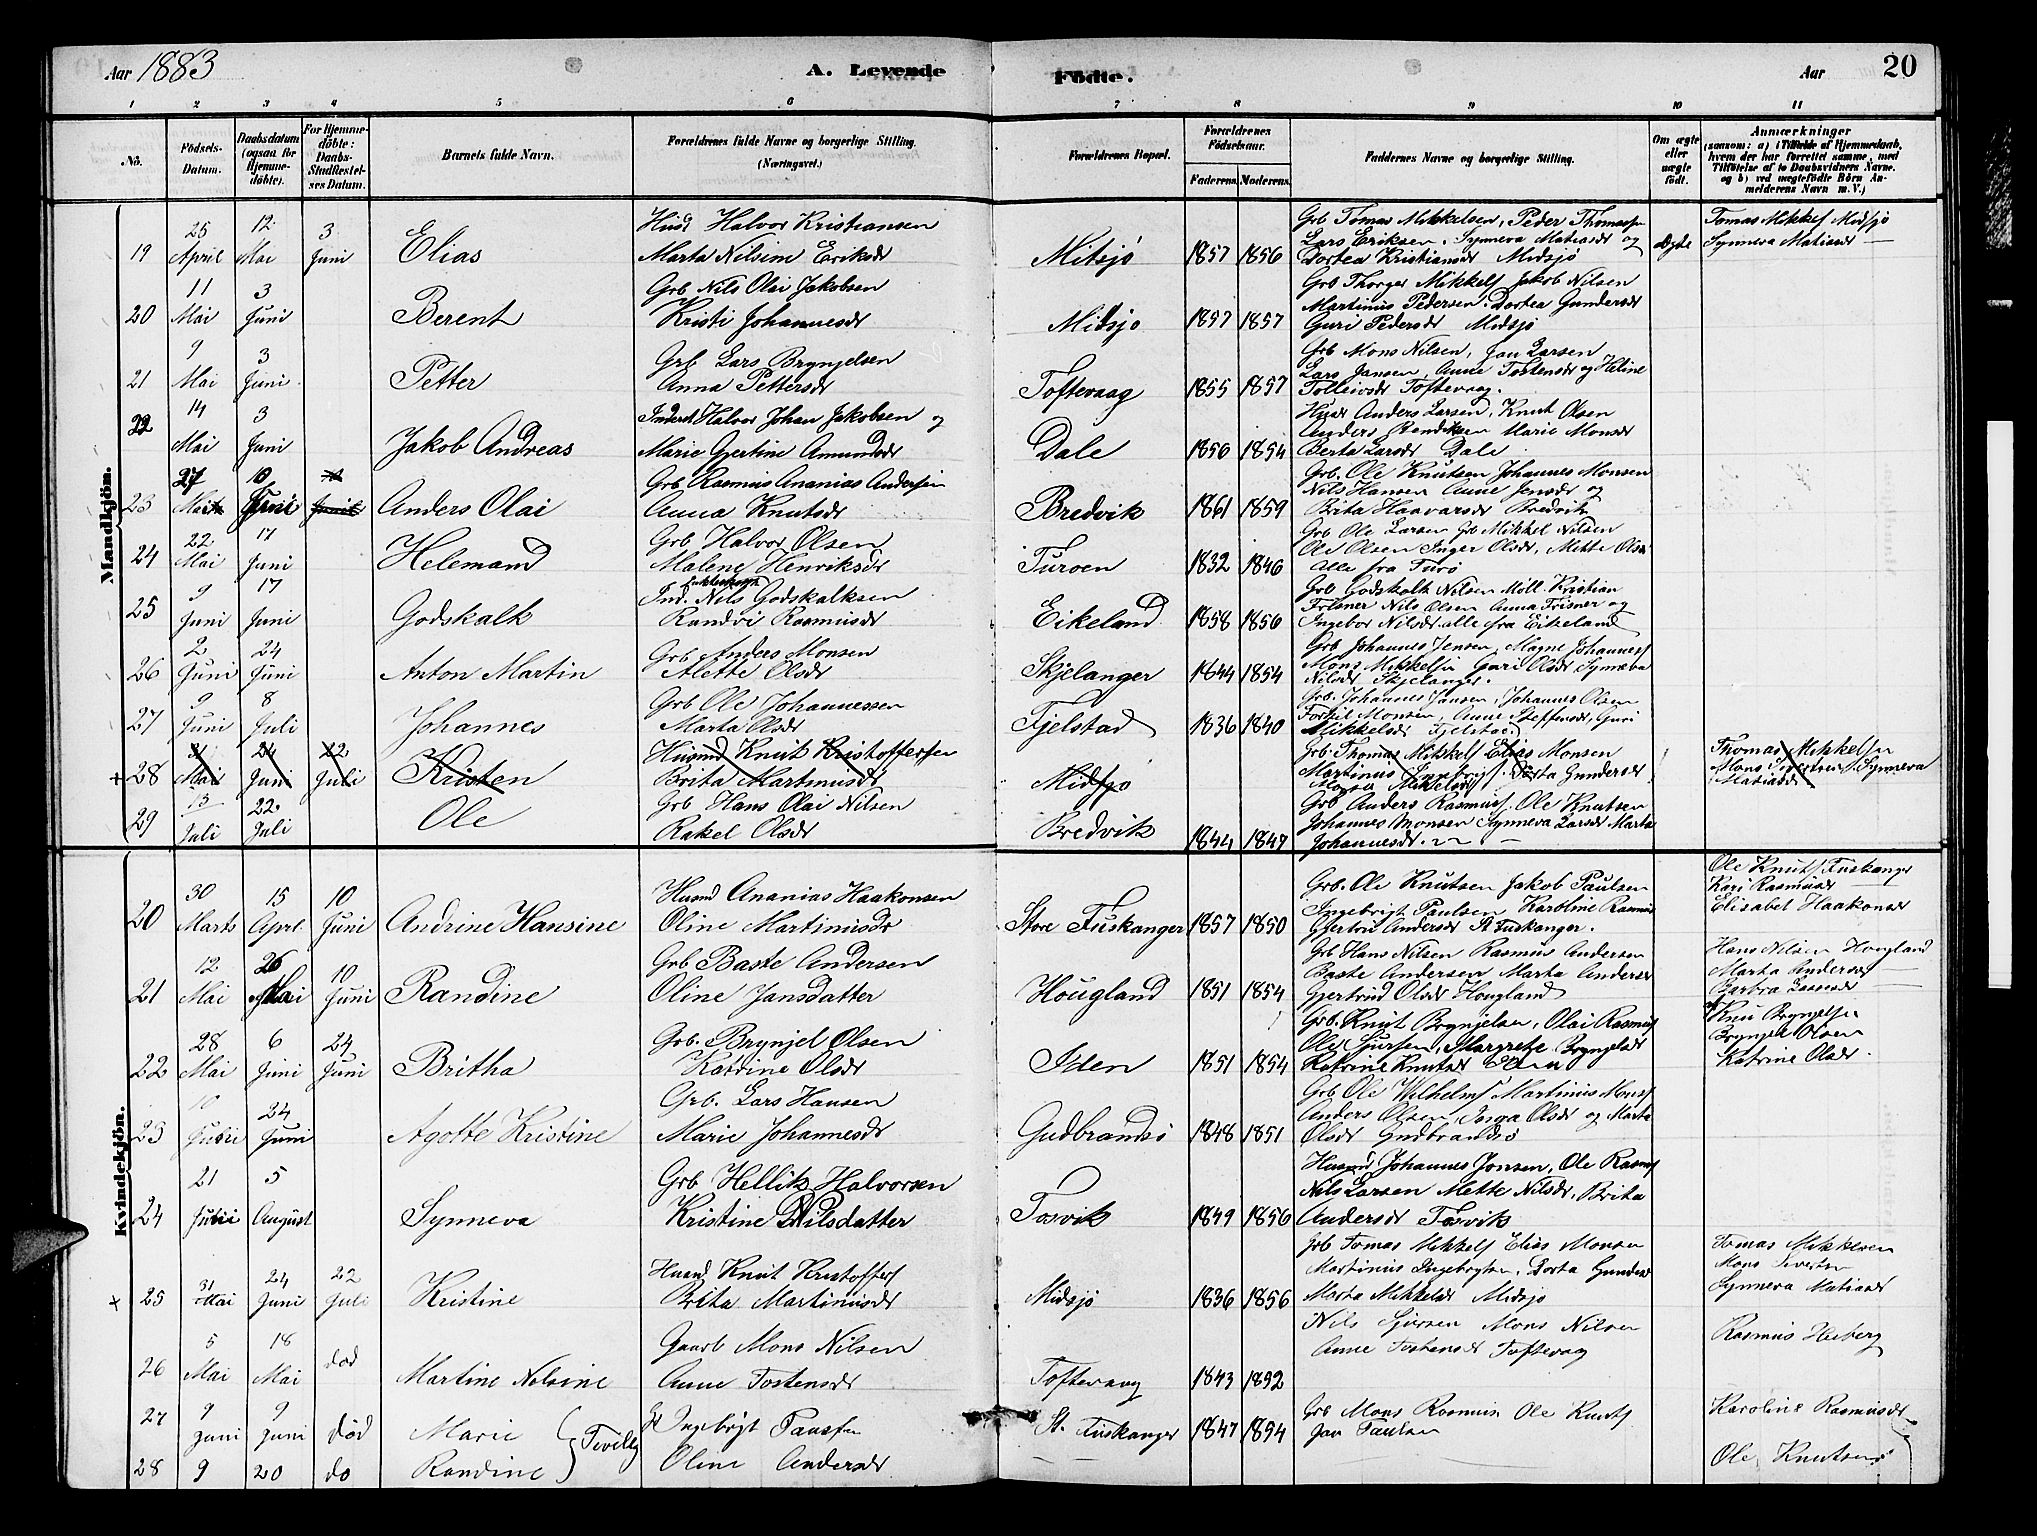 Aar 1883
A. Levende
Födte.
Aar
20
1 2 3 4 5 6 7 8 9 10 11
No.
Födsels-Datum.
Daabsdatum (ogsaa for Hjemmedöbte).
For Hjemmedöbte: Daabs-Stadfæstelses Datum.
Barnets fulde Navn.
Forældrenes fulde Navne og borgerlige Stilling. (Næringsvei.)
Forældrenes Bopæl.
Forældrenes Födselsaar.
Faderens. Moderens.
Faddernes Navne og borgerlige Stilling.
Om ægte eller uægte födt.
Anmærkninger
(saasom: a) Tilfælde af Hjemmedaab, hvem der har forrettet samme, med Tilföielse af to Daabsvidners Navne. og b) ved uægtefödte Börn Anmelderens Navn m. V.)
Mandkjön.
19 25 April 12 Mai 3 Juni Elias
Husd Halvor Kristiansen
Marta Nilsine Eriksdr
Mitsjö 1857 1856
Grb Tomas Mikkelsen, Peder Thomassen
Lars Eriksen, Synneva Matiasdr og
Dortea Kristiansdr Midsjö
Ægte
Tomas Mikkels Midsjö
Synneva Matiasdr —
20 11 Mai 3 Juni Berent
Grb Nils Olai Jakobsen
Kristi Johannesdr
Midsjö 1857 1857
Grb Thorger Mikkels Jakob Nilsen
Martinus Pedersen. Dortea Gundersdr
Guri Pedersdr Midsjö
21 9 Mai 3 Juni Petter
Grb Lars Brynjelsen
Anna Pettersdr
Toftevaag 1855 1857
Grb Mons Nilsen, Jan Larsen
Lars Jansen, Anne Tostensdr og Heline
Tolleivsdr Toftevaag.
22 14 Mai 3 Juni Jakob Andreas
Inderst Halvor Johan Jakobsen og
Marie Gjertine Amundsdr
Dale 1856 1854
Husd Anders Larsen, Knut Olsen
Anders Bendiksen Marie Monsdr
Berta Larsdr Dale
23 27 Mai 10 Juni Anders Olai
Grb Rasmus Ananias Andersen
Anna Knutsdr
Bredvik 1861 1859
Grb. Ole Knutsen Johannes Monsen
Nils Hansen Anne Jensdr og
Brita Haavarsdr Bredvik
24 22 Mai 17 Juni Helemand
Grb Halvor Olsen
Malene Henriksdr
Turoen 1832 1846
Grb Ole Larsen Gb Mikkel Nilsen
Ole Olsen Inger Olsdr, Mette Olsdr
Alle fra Turö
25 9 Juni 17 Juni Godskalk
Ind. Nils Godskalksen
Randvi Rasmusdr
Eikeland 1858 1856
Grb Godskalk Nilsen Möll. Kristian
Frisner Nils Olsen Anna Frisner og
Ingebor Nilsdr. alle fra Eikeland
26 2 Juni 24 Juni Anton Martin
Grb Anders Monsen
Alette Olsdr
Skjelanger 1844 1854
Grb Johannes Jensen, Magne Johannes
Mons Mikkelsen Guri Olsdr Synneva
Nilsdr Skjelanger.
27 9 Juni 8 Juli Johannes
Grb Ole Johannessen
Marta Olsdr
Fjelstad 1836 1840
Grb. Johannes Jansen, Johannes Olsen
Torkil Monsen, Anne Steffensdr, Guri
Mikkelsdr Fjelstad
+ 28 31 Mai 24 Juni 22 Juli Kristen
Husmd Knut Kristoffersen
Brita Martinusdr
Midsjö
Grb. Thomas Mikkels Elias Monsen
Martinus Ingebrigts. Dorta Gundersdr
Marta Mikkelsdr
Thomas Mikkelsen
Mons Sivertsen Synneva
Matiasdr
29 13 Juli 22 Juli Ole
Grb Hans Olai Nilsen
Rakel Olsdr
Bredvik 1844 1847
Grb Anders Rasmus, Ole Knutsen
Johannes Monsen Synneva Larsdr Marta
Johannesdr. —
Kvindekjön.
20 30 Marts 15 Apri. 10 Juni Andrine Hansine
Husmd Ananias Haakonsen
Oline Martinusdr
Store Fuskanger 1857 1850
Grb. Ole Knutsen Jakob Paulsen
Ingebrigt Paulsen Karoline Rasmus
Gjertru Andersdr St Fuskanger.
Ole Knuts Fuskanger
Kari Rasmusdr —
Elisabet Haakonsdr
21 12 Mai 26 Mai 10 Juni Randine
Grb Baste Andersen
Oline Jansdatter
Hougland 1851 1854
Grb Hans Nilsen Rasmus Andersen
Baste Andersen Marta Andersdr
Gjertrud Olsdr Hougland
Hans Nilsen Hougland
Marta Andersdr —
Barbra Lassesdr —
22 28 Mai 6 Juni 24 Juni Britha
Grb. Brynjel Olsen
Katrine Olsdr
Iden 1851 1854
Grb. Knut Brynjelsen, Olai Rasmus
Ole Sjursen, Margrete Brynjelsdr
Katrine Knutsdr
Knu Brynjelsen
Brynjel Olsen
Katrine Olsdr.
23 10 Juni 24 Juni Agotte Kristine
Grb. Lars Hansen
Marie Johannesdr
Gudbrandsö 1848 1851
Grb Ole Wilhelms Martinus Mons
Anders Olsen, Inga Olsdr og Marta
Olsdr Gudbrandsö
24 21 Juni 5 August Synneva
Grb Hellik Halvorsen
Kristine Nilsdatter
Tosvik 1849 1856
Husmd Johannes Jonsen, Ole Rasmus
Nils Larsen Mette Nilsdr, Brita
Andersdr Tosvik
+ 25 31 Mai 24 Juni 22 Juli Kristine
Husmd Knut Kristoffers
Brita Martinusdr
Midsjö 1836 1856
Grb Tomas Mikkels Elias Monsen
Martinus Ingebrigtsen, Dorta Gundersdr
Marta Mikkelsdr Midsjö
Tomas Mikkelsen
Mons Sivertsen
Synneva Matiasdr
26 5 Mai 18 Mai död Martine Nelsine
Gaardb Mons Nilsen
Anne Tostensdr
Toftevaag 1843 1892
Nils Sjursen Mons Nilsen
Anne Tostensdr Toftevaag
Rasmus Heiberg
27 9 Juni 9 Juni död Marie } Tvillg
Gb Ingebrigt Paulsen
St. Fuskanger 1847 1894
Grb Mons Rasmus Ole Knuts
Jan Paulsen
Karoline Rasmusdr
28 9 20 do Randine
Oline Andersdr
— —
Ole Knutsen